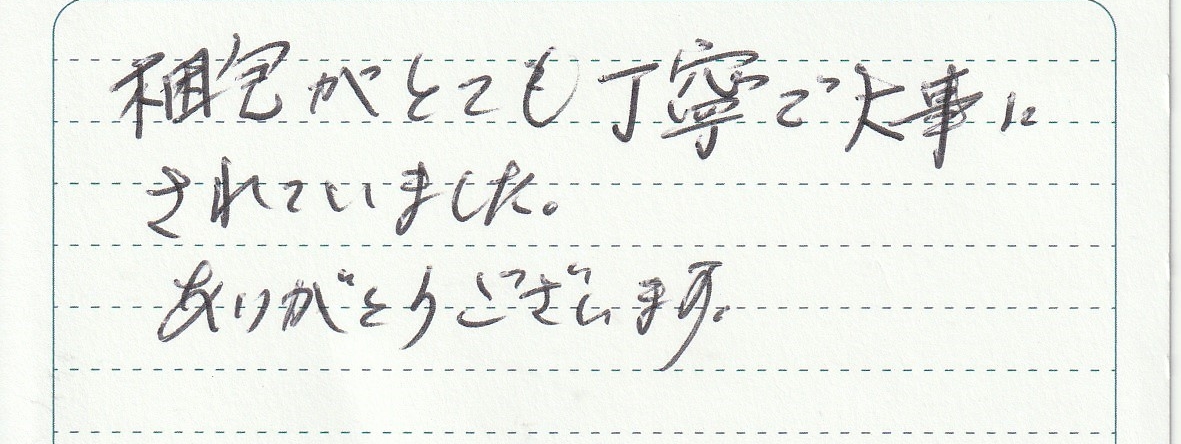 梱包がとても丁寧で大事に
されていました。
ありがとうございます。